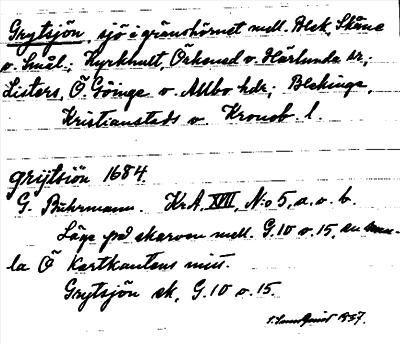 Grytsjön, sjö i gränshörnet mell. Blek, Skåne
o. Smål.; Kyrkhult, Örkened o. Härlunda sr;
Listers, Ö Göinge o. Allbo hdr; Blekinge,
Kristianstads o. Kronob. l.
grijtsiön 1684.
G. Buhrmann. KrA, XIII, N:o 5, a. o. b.
Läge på skarven mell. G.10 o. 15, en
la Ö Kartkantens mitt.
Grytsjön ek, G.10 o. 15.
1937.